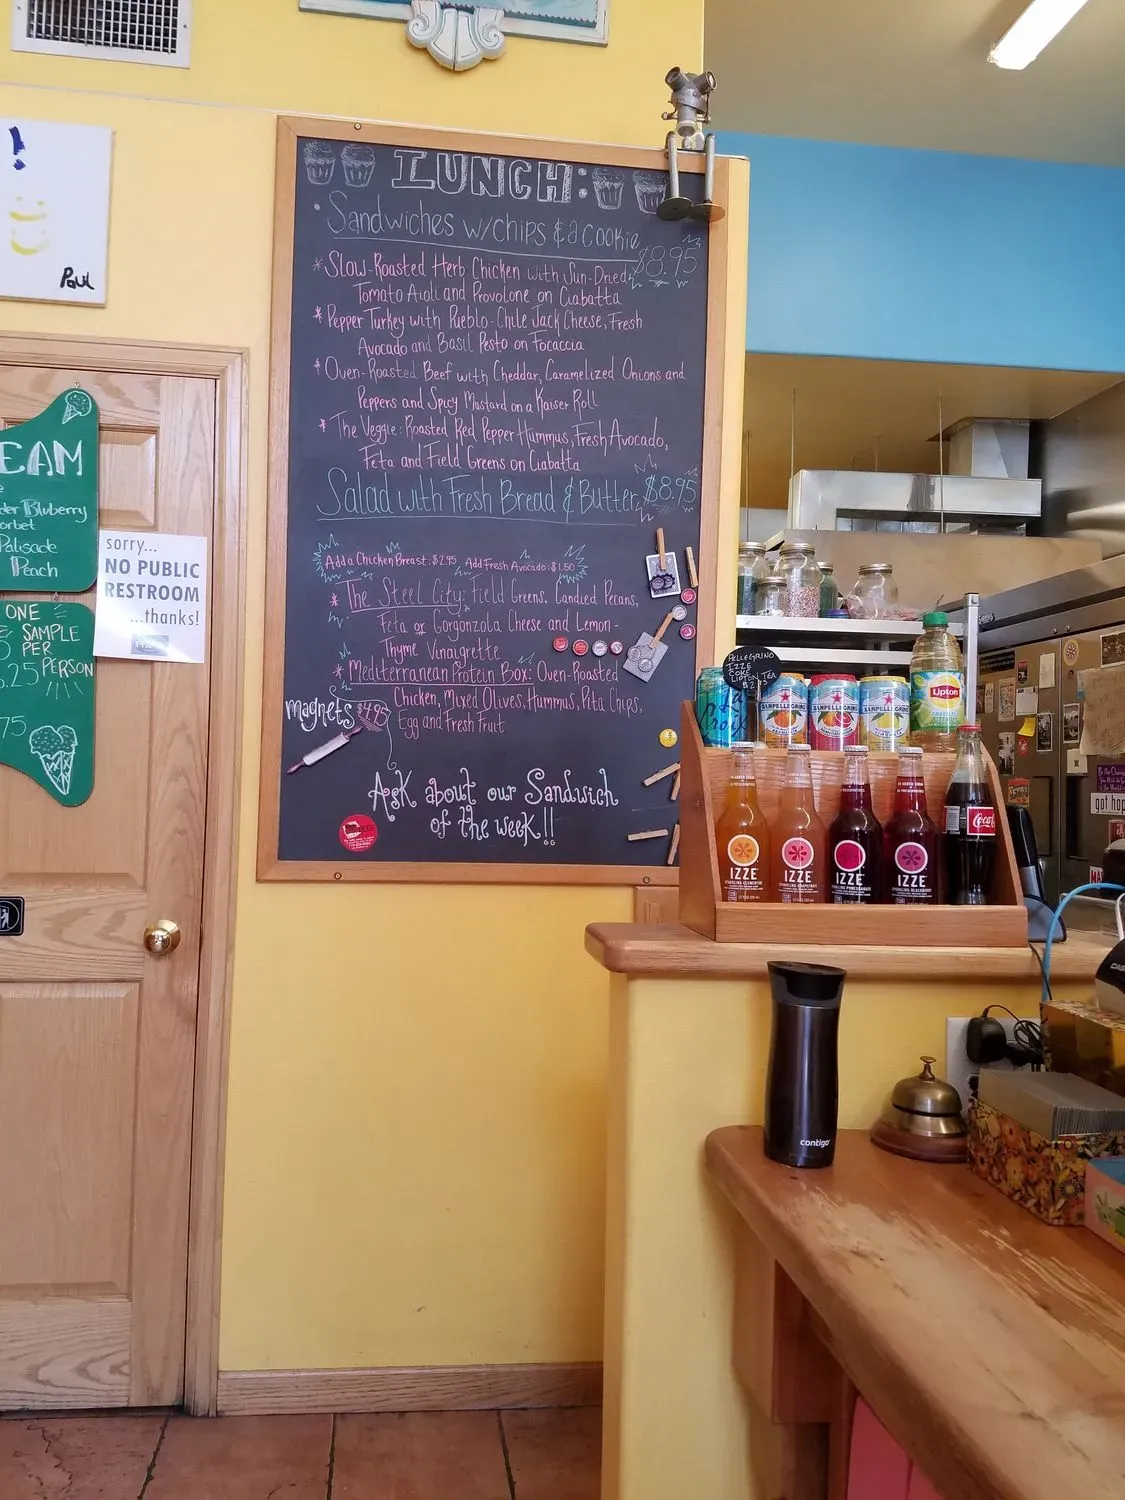 !
Paul
EAM
der Bluberry
orbet
Palisade
Peach
sorry...
NO PUBLIC
RESTROOM
...thanks!
ONE
SAMPLE
PER
PERSON
.25
75
LUNCH:
Sandwiches w/chips & a cookie $8.95
* Slow-Roasted Herb Chicken with Sun-Dried
Tomato Aioli and Provolone on Ciabatta
* Pepper Turkey with Pueblo-Chile Jack Cheese, Fresh
Avocado and Basil Pesto on Focaccia
* Oven-Roasted Beef with Cheddar, Caramelized Onions and
Peppers and Spicy Mustard on a Kaiser Roll
* The Veggie: Roasted Red Pepper Hummus, Fresh Avocado,
Feta and Field Greens on Ciabatta
Salad with Fresh Bread & Butter $8.95
Add a Chicken Breast: $2.95 Add Fresh Avocado: $1.50
* The Steel City: Field Greens, Candied Pecans,
Feta or Gorgonzola Cheese and Lemon-
Thyme Vinaigrette
* Mediterranean Protein Box: Oven-Roasted
Chicken, Mixed Olives, Hummus, Pita Chips,
Egg and Fresh Fruit
magnets $4.95
Ask about our Sandwich
of the week!!
PELLEGRINO
IZZE
COKE
LIPTON TEA
LaCroix
SANPELLEGRINO
SANPELLEGRINO
SANPELLEGRINO
Lipton
IZZE
SPARKLING CLEMENTINE
IZZE
SPARKLING GRAPEFRUIT
IZZE
SPARKLING POMEGRANATE
IZZE
SPARKLING BLACKBERRY
Coca
got hop
contigo